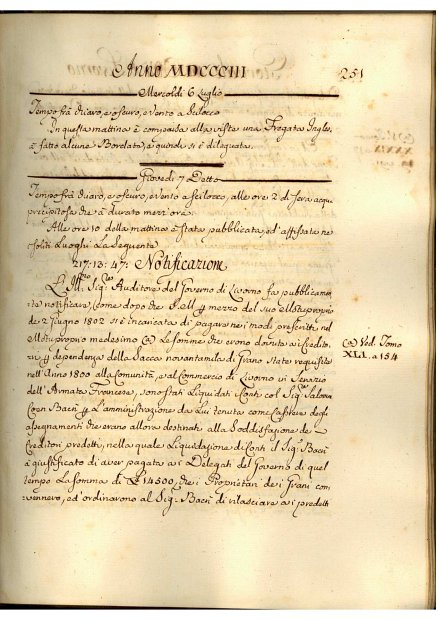 Anno MDCCCIII
251
Mercoldì 6 Luglio
Tempo frà chiaro, e oscuro, e vento a Scilocco
In questa mattina è comparsa alla vista una Fregata Ingle,
à fatto alcune Bordate, e quindi si è dileguata.
Giovedì 7 Detto
Tempo frà chiaro, e oscuro, e vento a Scilocco, alle ore 2 di sera acqua
precipitosa che à durato mezz'ora.
Alle ore 10 della mattina è stata pubblicata, ed affissata ne
soliti Luoghi La Seguente
217: 13: 47: Notificazione
L'Ill Sig Auditore del Governo di Livorno fa pubblicamen
te notificare, Come dopo che S. M. mezzo del suo Motuproprio
de 2 Giugno 1802 si è incaricata di pagare ne i modi prescritti nel
Motuproprio medesimo Le somme che erano dovute ai Credito
ri dependenza delle Sacca novantamila di Grano state requisite
nell'Anno 1800 alla Comunità, e al Commercio di Livorno in Servizio
dell'Armata Francese, sono stati Liquidati i Conti col Sig Salvador
Coen Bacri L'amministrazione da Lui tenuta come Cassiere degli
assegnamenti che erano allora destinati alla Soddisfazione de
Creditori predetti, nella quale Liquidazione di Conti il Sig Bacri
à giustificato di aver pagata a i Delegati del Governo di quel
tempo La somma di 14500, che i Proprietarj de i Grani con
vennero, ed ordinarono al Sig Bacri di rilasciare a i predetti
Ved. Tomo
XLI. a 154